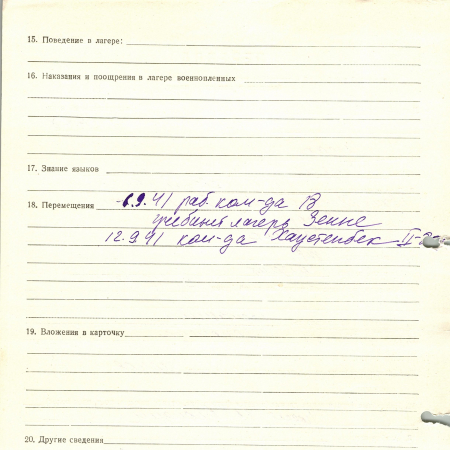 15. Поведение в лагере:
16. Наказания и поощрения в лагере военнопленных
17. Знание языков
18. Перемещения - 6.9.41 раб. ком-да В
учебный лагерь Зенне
12.9.41 ком-да Хаустенбек
19. Вложения в карточку
20. Другие сведения